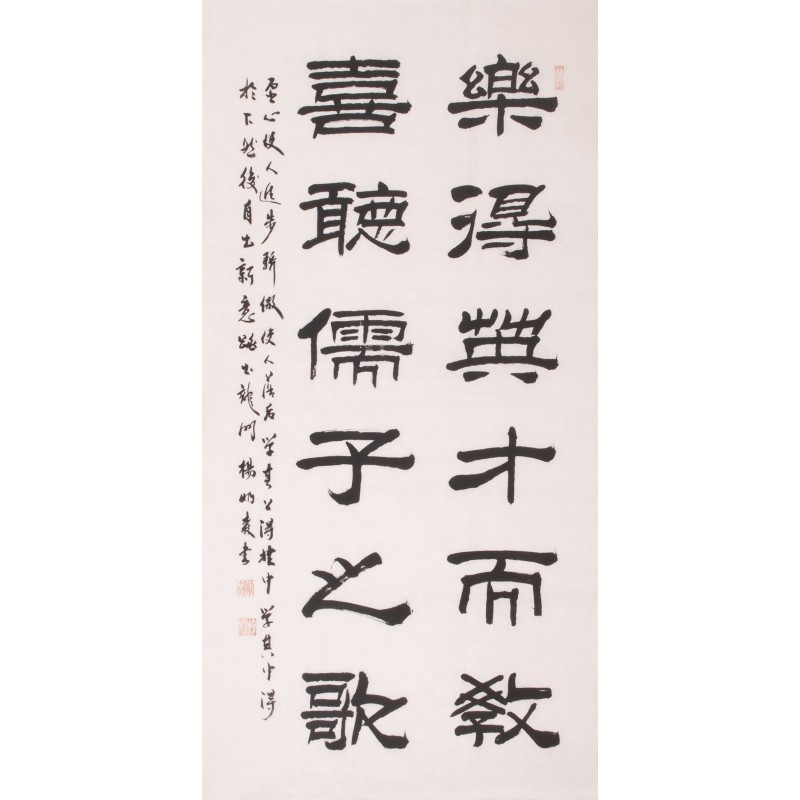 樂得英才而教
喜聽儒子之歌
虛心使人進步驕傲使人落后学其上得其中学其中得
於下然後自出新意出龍門楊书